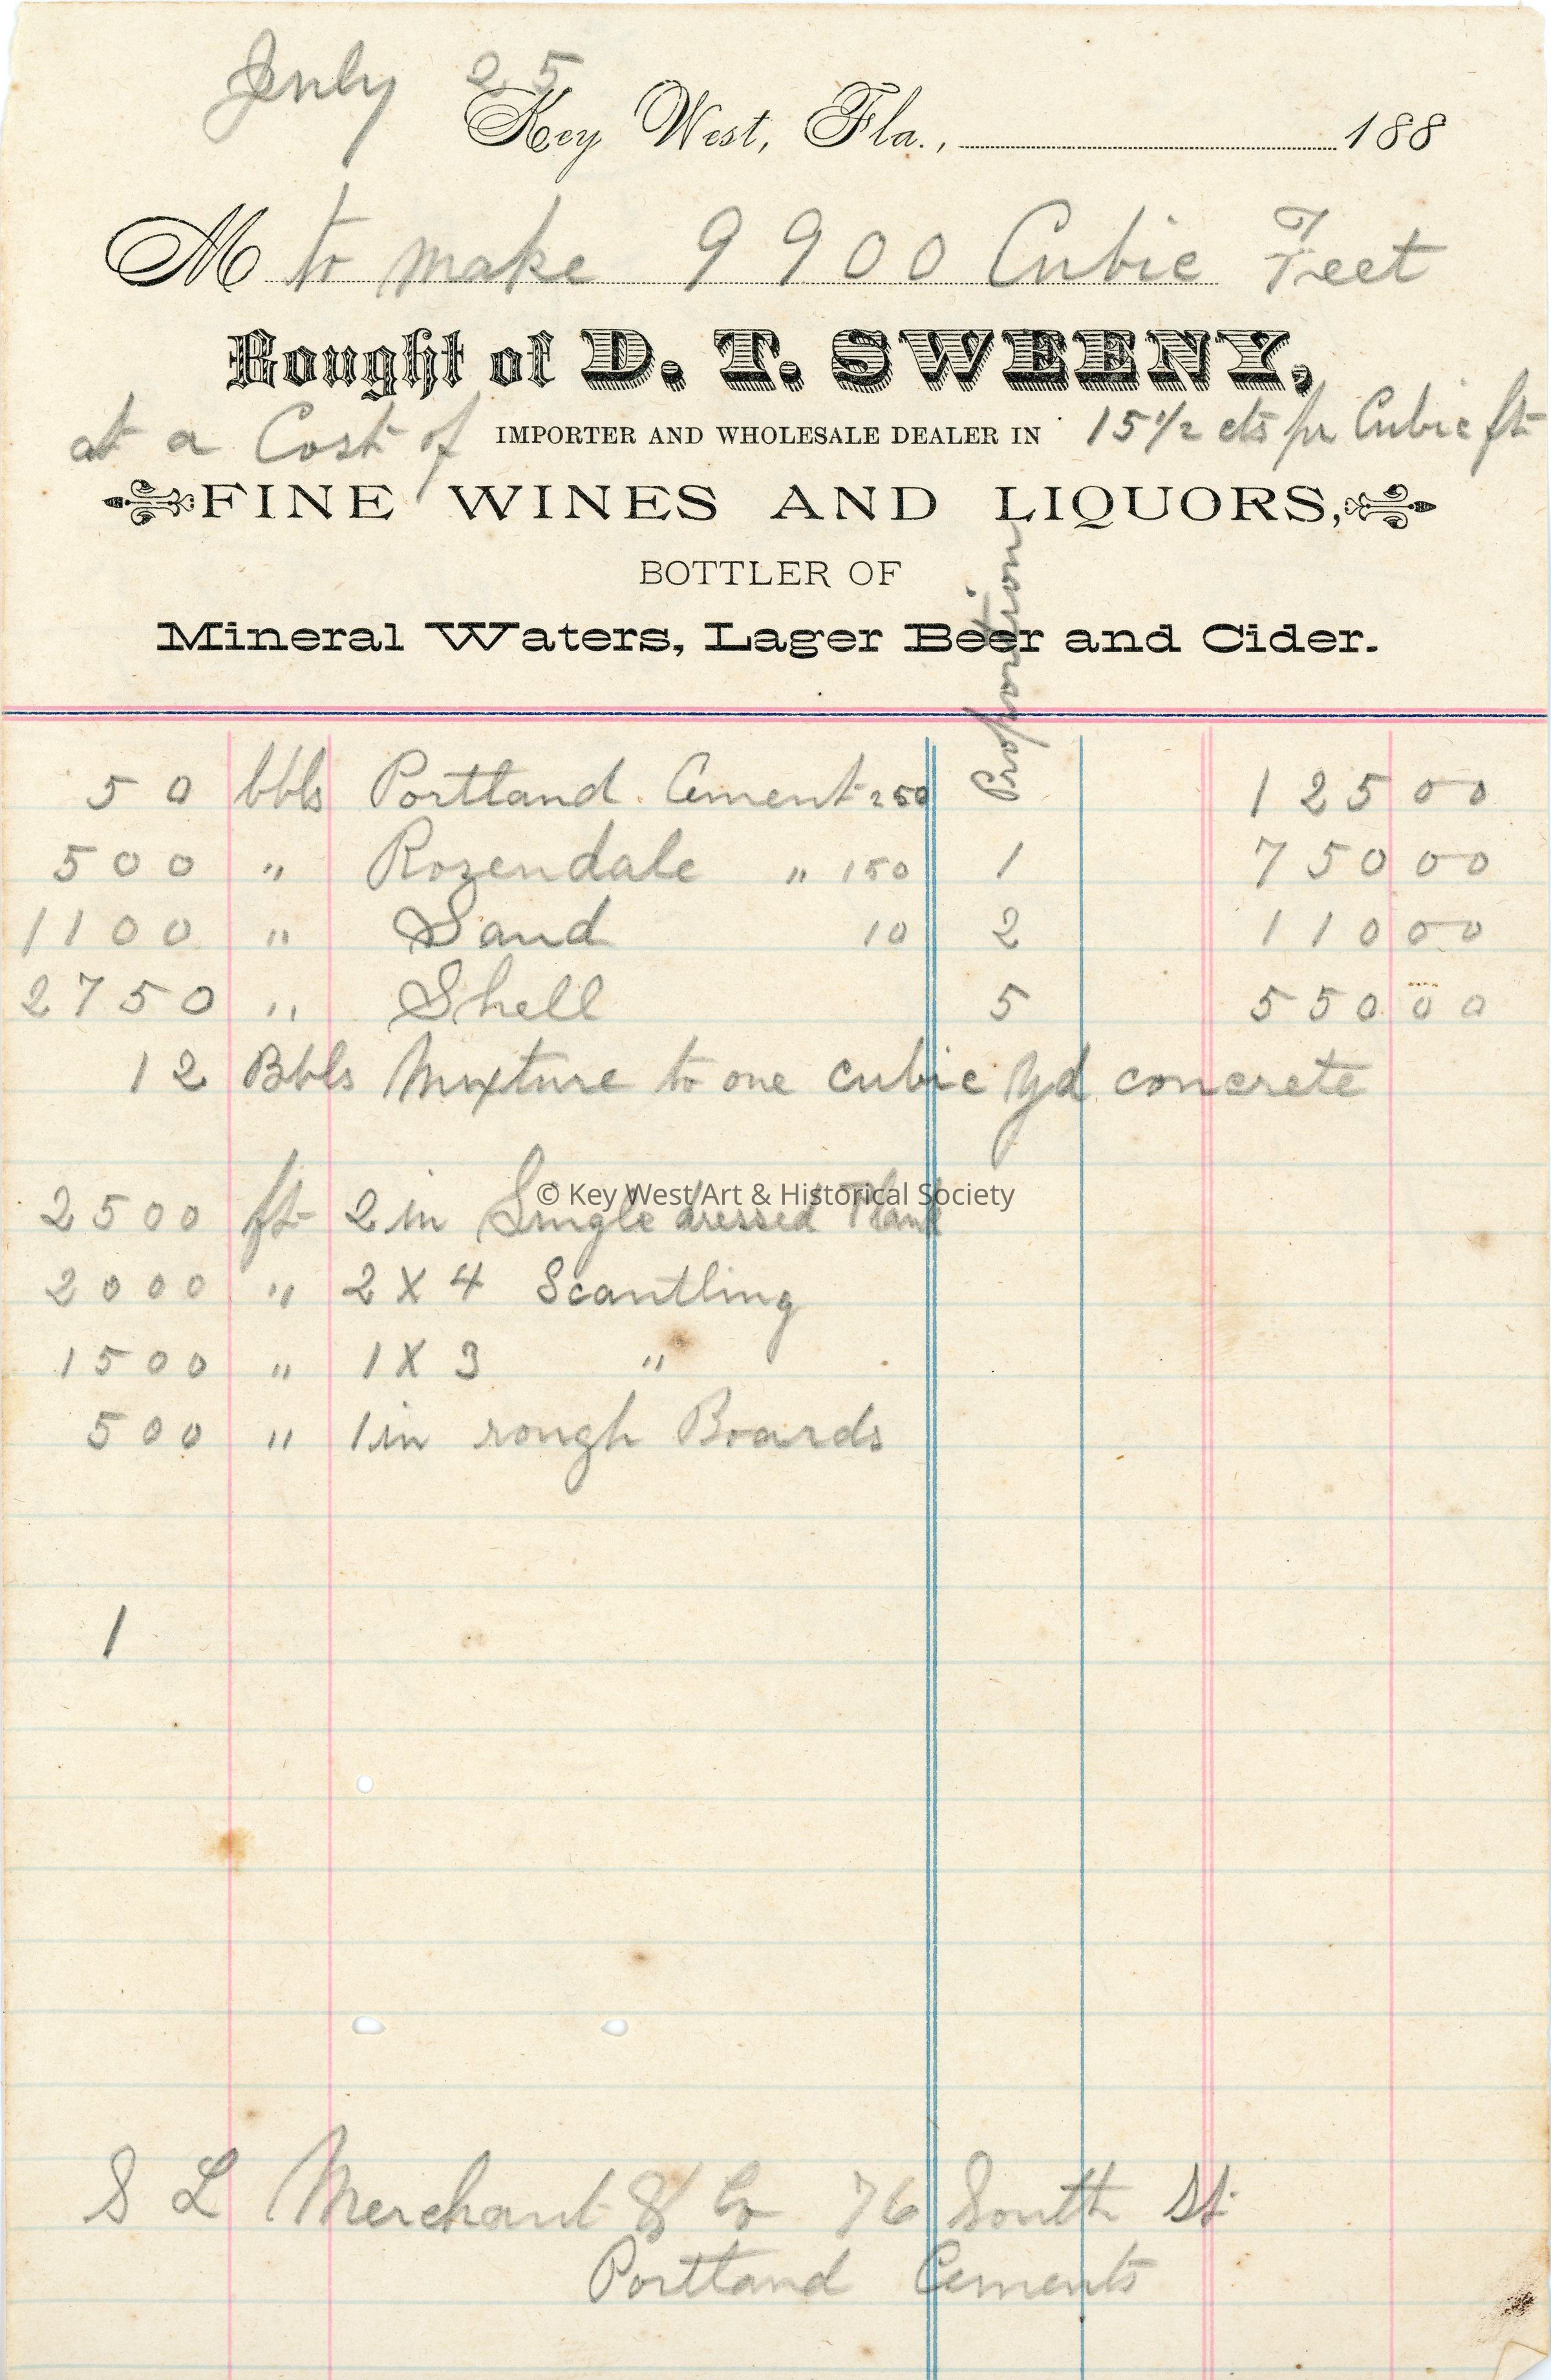 July 25
Key West, Fla., 188
M to make 9900 Cubic Feet
Bought of D. T. SWEENY,
at a Cost of IMPORTER AND WHOLESALE DEALER IN 15 1/2 cts pr Cubic ft
FINE WINES AND LIQUORS,
BOTTLER OF
Mineral Waters, Lager Beer and Cider.
Proportion
50 bbls Portland Cement 250 125 00
500 " Rozendale " 150 1 750 00
1100 " Sand 10 2 110 00
2750 " Shell 5 550 00
12 Bbls Mixture to one cubic yd concrete
© Key West Art & Historical Society
2500 ft 2 in Single dressed Plank
2000 " 2 X 4 Scantling
1500 " 1 X 3 "
500 " 1 in rough Boards
1
S L Merchant & Co 76 South St
Portland Cements